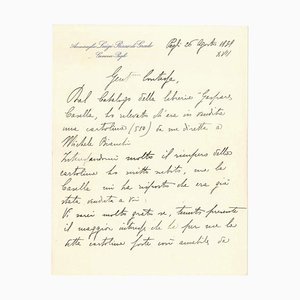 Ammiraglio Luigi Rizzo di Grado
Genova Pegli
Pegli 26 Agosto 1938
XVI
Gent. Contessa,
Dal Catalogo della libreria "Gaspare
Casella, ho rilevato ch'era in vendita
una cartolina (580) da me diretta a
Michele Bianchi
molto il ricupero della
cartolina ho scritto subito, ma la
Casella mi ha risposto che era già
stata venduta a Voi.
Vi sarei molto grato se, tenuto presente
il maggior interesse che ha per me la
detta cartolina foste così amabile da